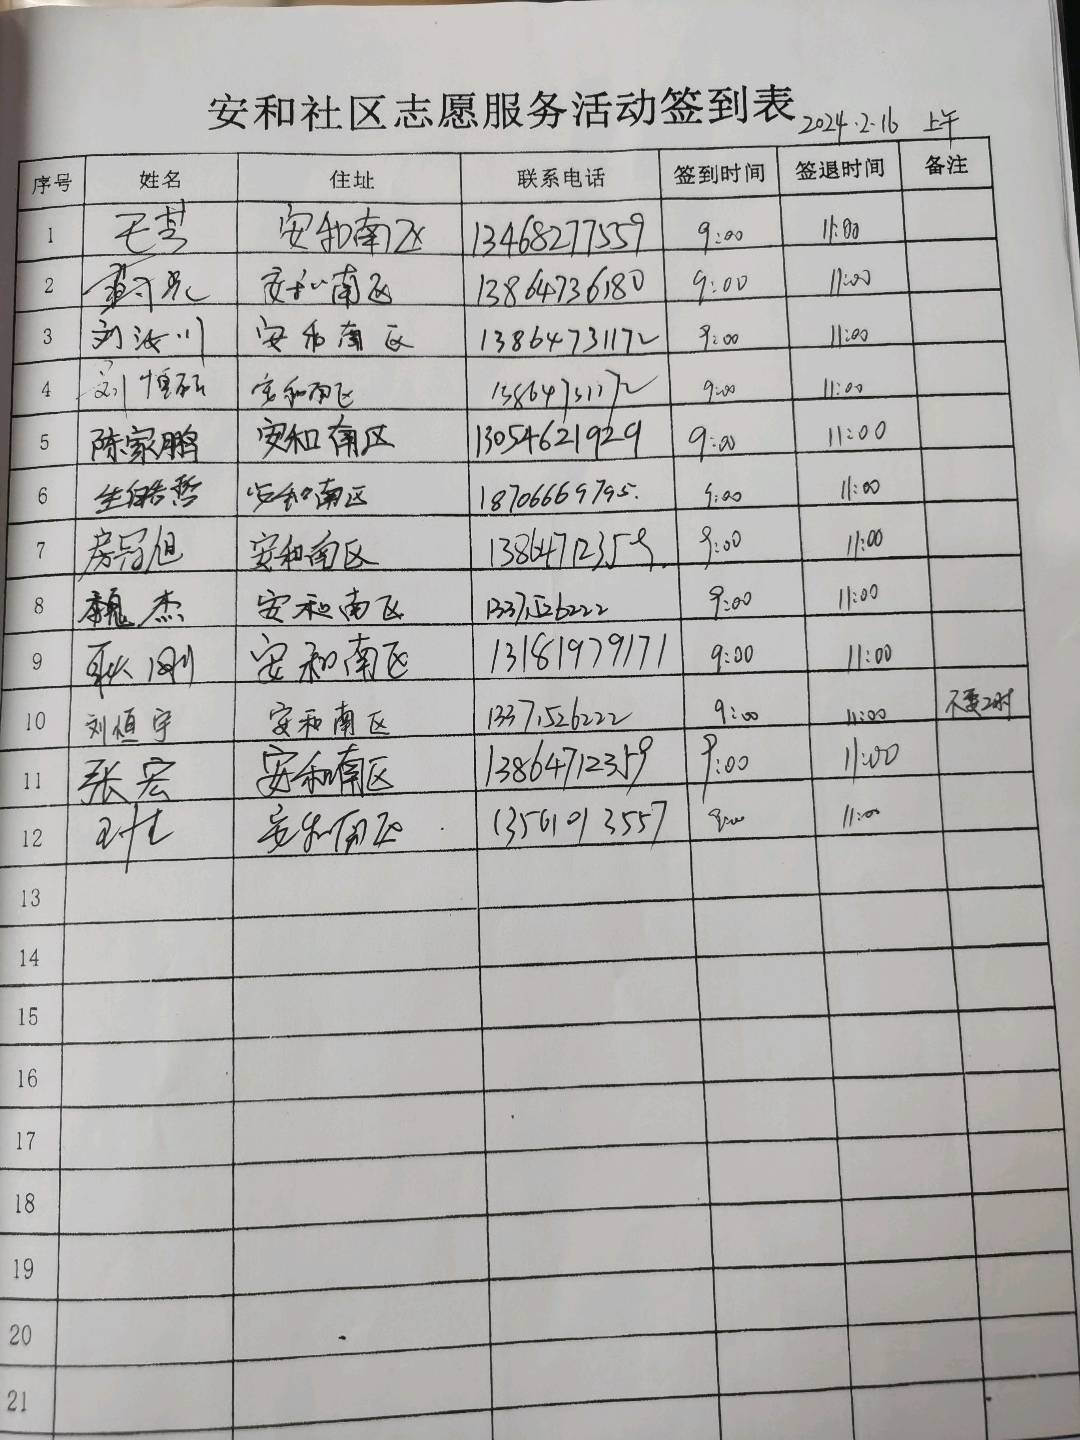 安和社区志愿服务活动签到表 2024.2.16 上午
序号 姓名 住址 联系电话 签到时间 签退时间 备注
1 安和南区 13468277559 9:00 11:00
2 安和南区 13864736180 9:00 11:00
3 刘汝川 安和南区 13864731172 9:00 11:00
4 安和南区 13864731172 9:00 11:00
5 陈家鹏 安和南区 13054621929 9:00 11:00
6 安和南区 18706669795. 9:00 11:00
7 房冠旭 安和南区 13864712359 9:00 11:00
8 魏杰 安和南区 13371526222 9:00 11:00
9 耿刚 安和南区 13181979171 9:00 11:00
10 刘恒宇 安和南区 13371526222 9:00 11:00 不要2时
11 张宏 安和南区 13864712359 9:00 11:00
12 安和南区 13561013557 9:00 11:00
13
14
15
16
17
18
19
20
21